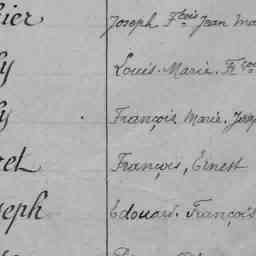 ier Joseph Fçois Jean Ma
y Louis. Marie. Frço
y François Marie. Josep
et François, Ernest
seph Edouard. François